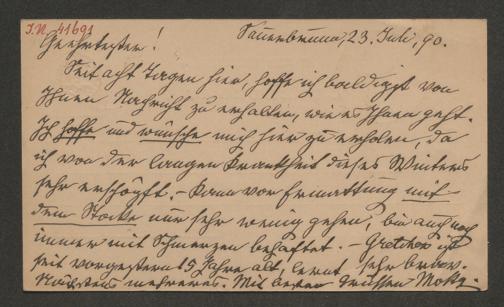 I.N. 41691
Geehrtester! Sauerbrunn, 23. Juli, 90.
Seit acht Tagen hier, hoffe ich baldigst von
Ihnen Nachricht zu erhalten, wie es Ihnen geht.
Ich hoffe und wünsche mich hier zu erholen, da
ich von der langen Krankheit dieses Winters
sehr erschöpft. – Kann vor Ermattung mit
dem Stocke nur sehr wenig gehen, bin auch noch
immer mit Schmerzen behaftet. – Gretchen ist
seit vorgestern 15 Jahre alt, lernt sehr brav.
Nächstens mehreres. Mit besten Grüssen